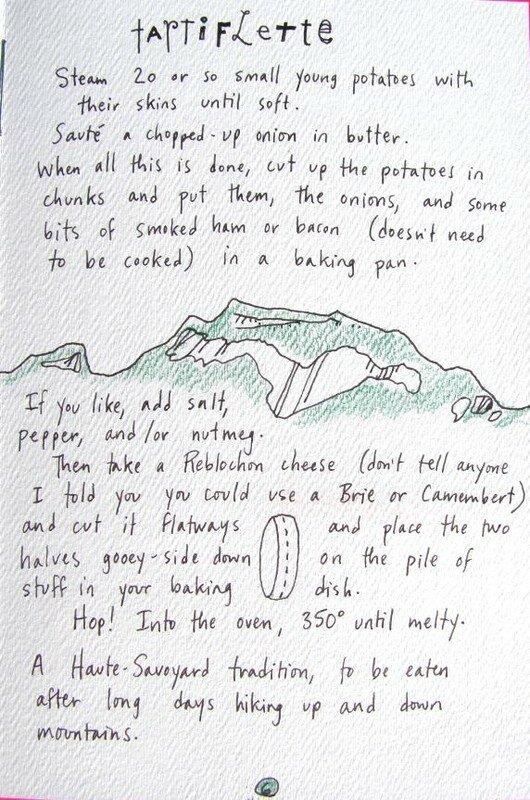 tARTiFLeTTe
Steam 20 or so small young potatoes with
their skins until soft.
Sauté a chopped-up onion in butter.
When all this is done, cut up the potatoes in
chunks and put them, the onions, and some
bits of smoked ham or bacon (doesn't need
to be cooked) in a baking pan.
If you like, add salt,
pepper, and/or nutmeg.
Then take a Reblochon cheese (don't tell anyone
I told you you could use a Brie or Camembert)
and cut it flatways and place the two
halves gooey-side down on the pile of
stuff in your baking dish.
Hop! Into the oven, 350° until melty.
A Haute-Savoyard tradition, to be eaten
after long days hiking up and down
mountains.
6